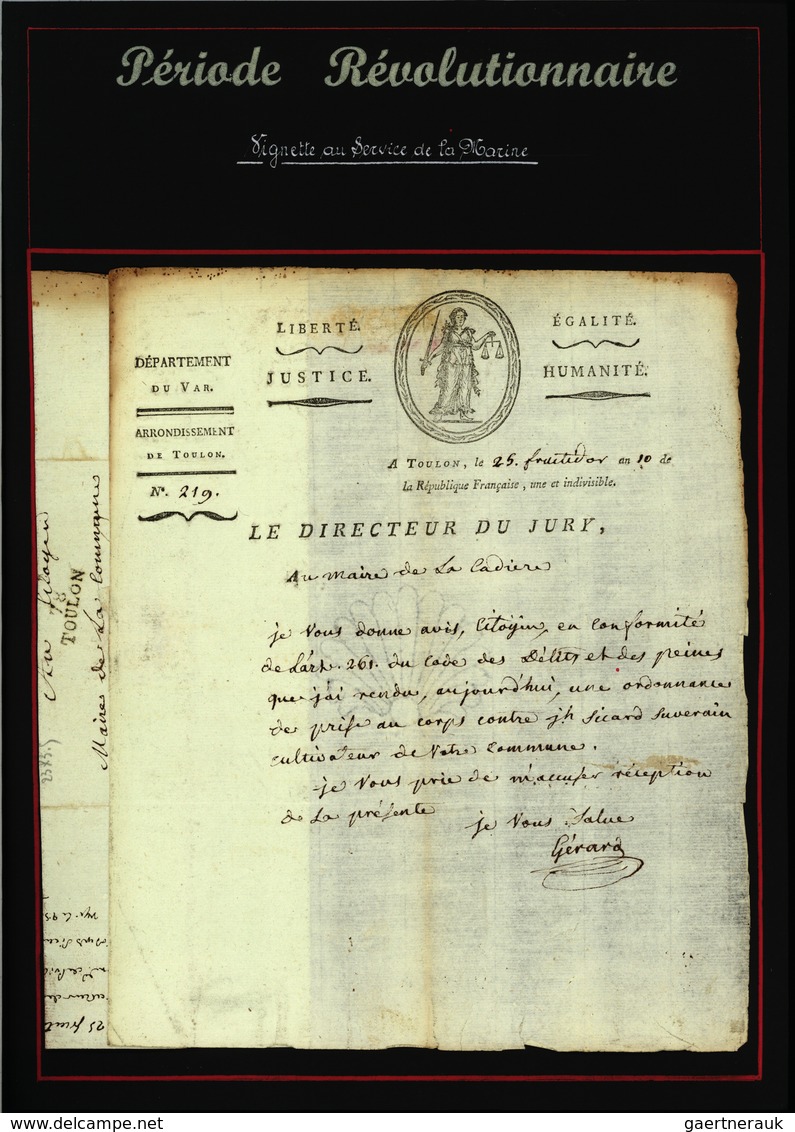 Période Révolutionnaire
Vignette au Service de la Marine
LIBERTÉ.
ÉGALITÉ.
JUSTICE.
HUMANITÉ.
DÉPARTEMENT
DU VAR.
ARRONDISSEMENT
DE TOULON.
N.° 219.
A TOULON, le 25. fruitidor an 10 de
la République Française, une et indivisible.
LE DIRECTEUR DU JURY,
Au Maire de La Cadiere
je Vous donne avis, Citoyin, en conformité
de L'art. 261. du Code des Délits et des peines
que j'ai rendu, aujourd'hui, une ordonnance
de prise au corps contre jh Sicard Suverain
cultivateur de Votre Commune.
je Vous prie de m'accuser réception
de La présente
je Vous Salue
Gérard
Citoyen
78
TOULON
Maire de La Commune
delcampe.net
gaertnerauk